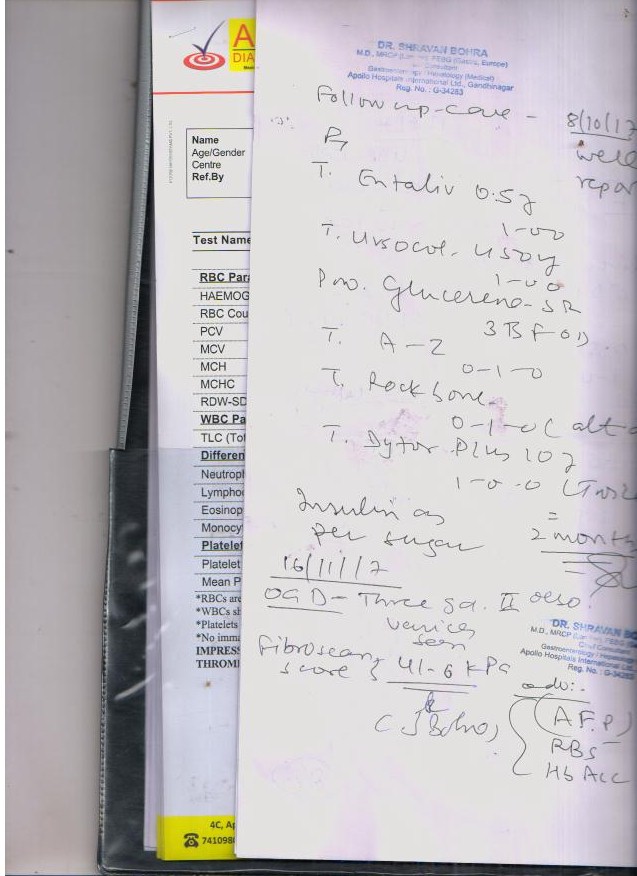 A
DIA
Name
Age/Gender
Centre
Ref.By
Test Name
RBC Para
HAEMOG
RBC Cou
PCV
MCV
MCH
MCHC
RDW-SD
WBC Pa
TLC (Tot
Differen
Neutrop
Lympho
Eosinop
Monocy
Platelet
Platelet
Mean P
*RBCs are
*WBCs sh
*Platelets
*No imma
IMPRES
THROM
4C, Ap
741098
DR. SHRAVAN BOHRA
M.D., MRCP FEBG (Gastro, Europe)
Consultant
Gastroenterology / Hepatology (Medical)
Apollo Hospitals International Ltd., Gandhinagar
Reg. No. : G-34283
Follow up-care - 8/10/17
well
repor
T. Entaliv 0.5
1-0-0
T. Ursocol. 450
1-0-0
Pow. Glucerena-SR
3 B F OD
T. A-Z
0-1-0
T. Rockbone
0-1-0 (alt
T. Dytor Plus 10
1-0-0
Insulin as
per sugar
2 month
16/11/17
OGD- Three gd. II oeso.
varices
seen
Fibroscan
score } 41.6 kPa
DR. SHRAVAN BO
M.D., MRCP
Chief Consultant
Gastroenterology / Hepato
Apollo Hospitals International Ltd.
Reg. No. : G-34283
adv:-
(A.F.P)
RBS
Hb A1C